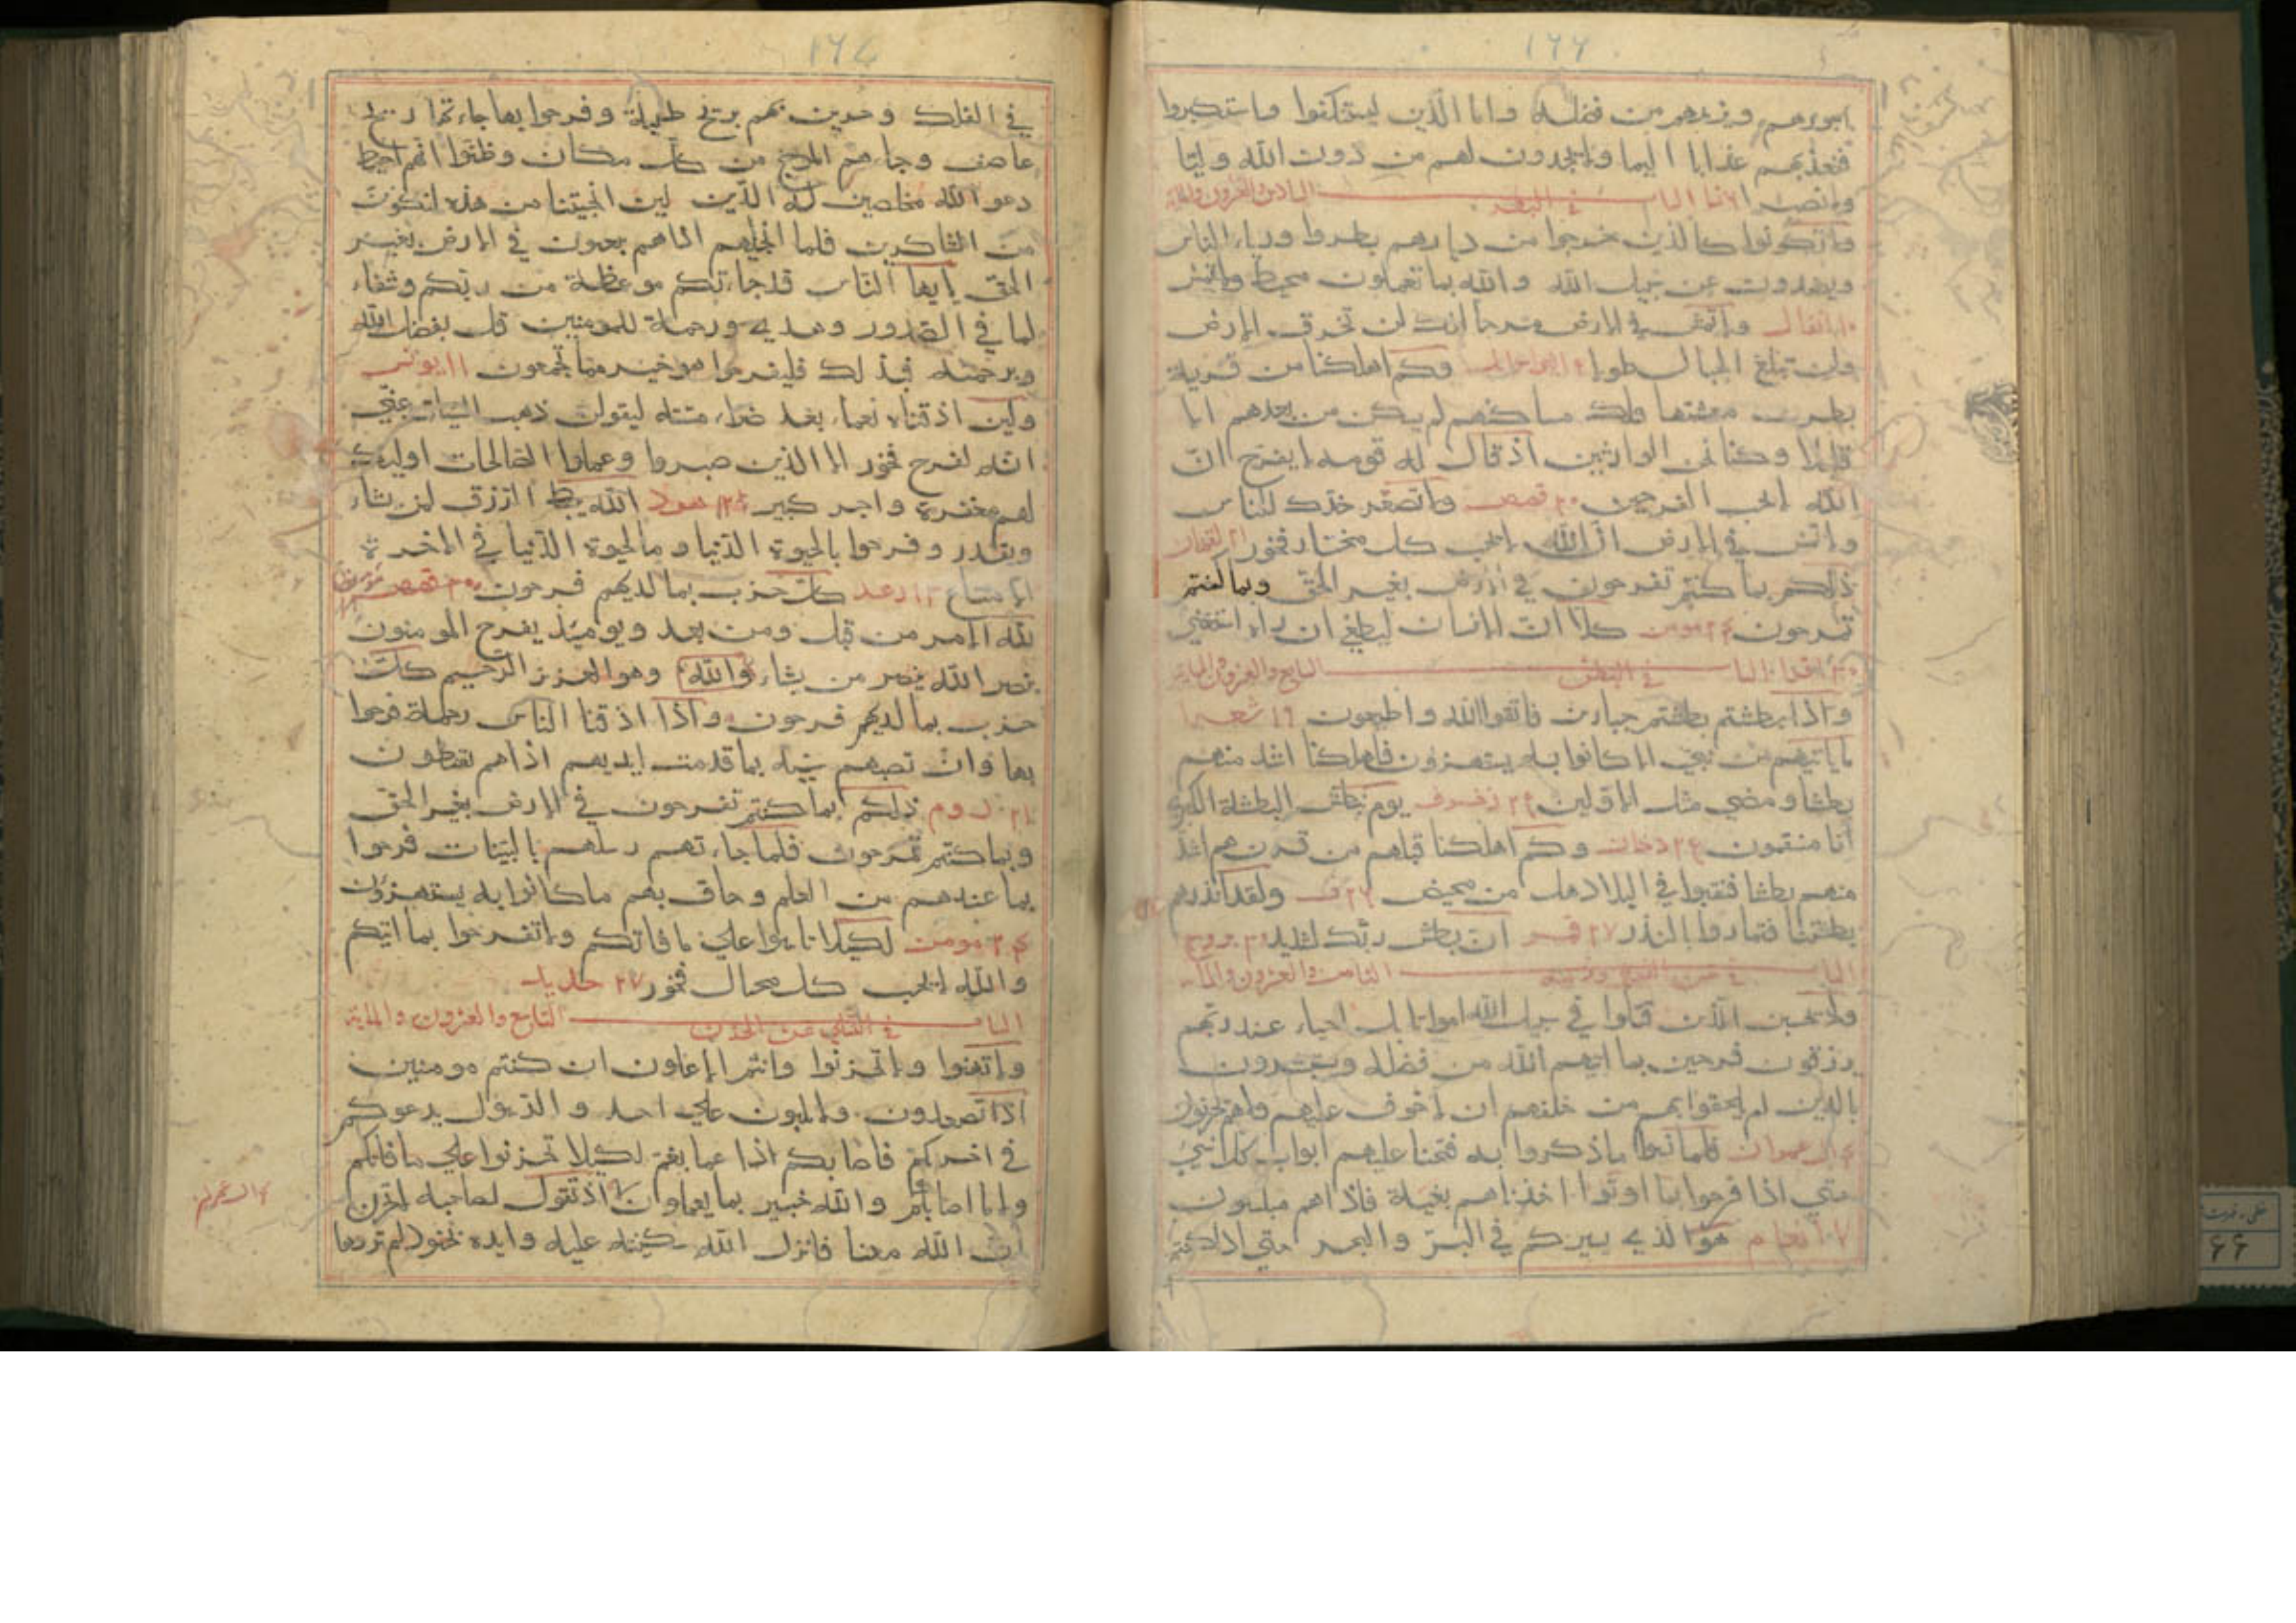 ١٦٦
اجورهم ويزيدهم من فضله واما الذين استنكفوا واستكبروا
فيعذبهم عذابا اليما ولا يجدون لهم من دون الله وليا
ولا نصيرا الباب في البطر السادس والعشرون والماية
ولا تكونوا كالذين خرجوا من ديارهم بطرا ورياء الناس
ويصدون عن سبيل الله والله بما تعملون محيط
١٠ انفال ولا تمش في الارض مرحا انك لن تخرق الارض
ولن تبلغ الجبال طولا وكم اهلكنا من قرية
بطرت معيشتها فتلك مساكنهم لم يسكن من بعدهم الا
قليلا وكنا نحن الوارثين اذ قال له قومه لا تفرح ان
الله لا يحب الفرحين ٢٠ قصص ولا تصعر خدك للناس
ولا تمش في الارض ان الله لا يحب كل مختار فخور ٢١ لقمان
ذلكم بما كنتم تفرحون في الارض بغير الحق وبما كنتم
تمرحون ٢٤ مومن كلا ان الانسان ليطغى ان راه استغنى
٣٠ اقرا الباب في البطش السابع والعشرون والماية
واذا بطشتم بطشتم جبارين فاتقوا الله واطيعون ١٩ شعرا
ما ياتيهم من نبي الا كانوا به يستهزؤن فاهلكنا اشد منهم
بطشا ومضى مثل الاولين ٢٥ زخرف يوم نبطش البطشة الكبرى
انا منتقمون ٢٥ دخان وكم اهلكنا قبلهم من قرن هم اشد
منهم بطشا فنقبوا في البلاد هل من محيص ٢٦ ق ولقد انذرهم
بطشتنا فتماروا بالنذر ٢٧ قمر ان بطش ربك لشديد ٣٠ بروج
الباب في الثامن والعشرون والماية
ولا تحسبن الذين قتلوا في سبيل الله امواتا بل احياء عند ربهم
يرزقون فرحين بما اتيهم الله من فضله ويستبشرون
بالذين لم يلحقوا بهم من خلفهم ان لا خوف عليهم ولا هم يحزنون
٤ ال عمران فلما نسوا ما ذكروا به فتحنا عليهم ابواب كل شي
حتى اذا فرحوا بما اوتوا اخذناهم بغتة فاذا هم مبلسون
٧ انعام هو الذي يسيركم في البر والبحر حتى اذا كنتم
١٦٧
في الفلك وجرين بهم بريح طيبة وفرحوا بها جاءتها ريح
عاصف وجاءهم الموج من كل مكان وظنوا انهم احيط
دعوا الله مخلصين له الدين لئن انجيتنا من هذه لنكونن
من الشاكرين فلما انجاهم اذا هم يبغون في الارض بغير
الحق يا يها الناس قد جاءتكم موعظة من ربكم وشفاء
لما في الصدور وهدى ورحمة للمومنين قل بفضل الله
وبرحمته فبذلك فليفرحوا هو خير مما يجمعون ١١ يونس
ولئن اذقناه نعماء بعد ضراء مسته ليقولن ذهب السيات عني
انه لفرح فخور الا الذين صبروا وعملوا الصالحات اوليك
لهم مغفرة واجر كبير ١٢ هود الله يبسط الرزق لمن يشاء
ويقدر وفرحوا بالحيوة الدنيا وما الحيوة الدنيا في الاخرة
الا متاع ١٣ رعد كل حزب بما لديهم فرحون
لله الامر من قبل ومن بعد ويوميذ يفرح المومنون
بنصر الله ينصر من يشاء والله وهو العزيز الرحيم كل
حزب بما لديهم فرحون واذا اذقنا الناس رحمة فرحوا
بها وان تصبهم سيئة بما قدمت ايديهم اذا هم يقنطون
٢١ روم ذلكم بما كنتم تفرحون في الارض بغير الحق
وبما كنتم تمرحون فلما جاءتهم رسلهم بالبينات فرحوا
بما عندهم من العلم وحاق بهم ما كانوا به يستهزؤن
٢٤ مومن لكيلا تاسوا على ما فاتكم ولا تفرحوا بما اتيكم
والله لا يحب كل محتال فخور ٢٧ حديد
الباب في التسلي عن الحزن التاسع والعشرون والماية
ولا تهنوا ولا تحزنوا وانتم الاعلون ان كنتم مومنين
اذ تصعدون ولا تلوون على احد والرسول يدعوكم
في اخريكم فاثابكم غما بغم لكيلا تحزنوا على ما فاتكم
ولا ما اصابكم والله خبير بما تعملون اذ تقول لصاحبه لا تحزن
ان الله معنا فانزل الله سكينته عليه وايده بجنود لم تروها
٤ ال عمران